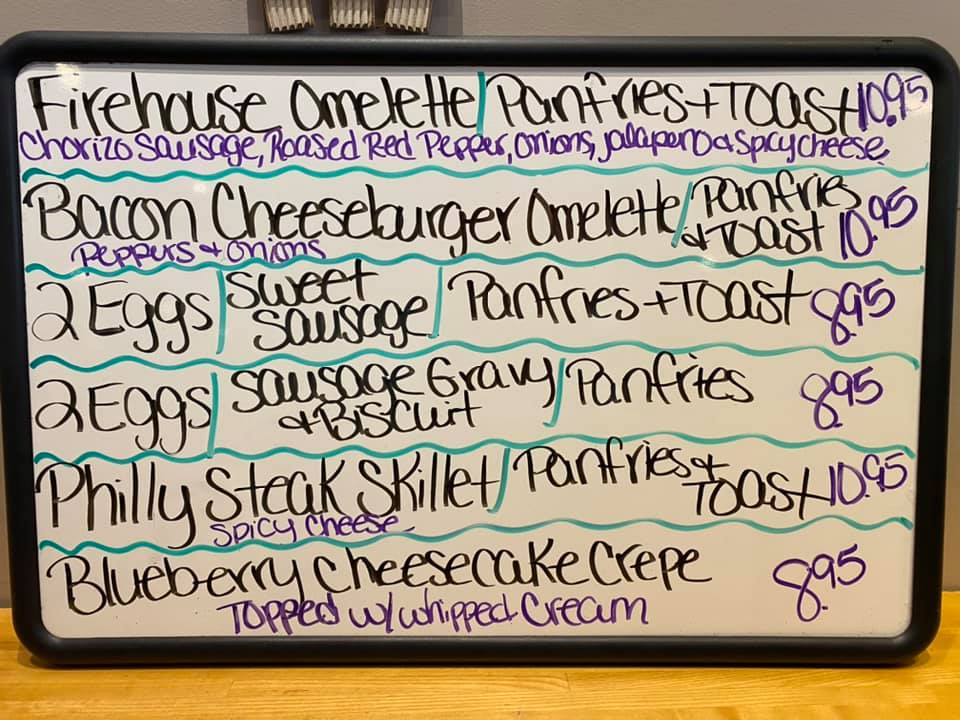 Firehouse Omelette/Panfries+Toast 10.95
Chorizo Sausage, Roased Red Pepper, Onions, Jalapeno & Spicy cheese
Bacon Cheeseburger Omelette/Panfries
& Toast 10.95
Peppers & Onions
2 Eggs/Sweet
Sausage/Panfries+Toast 8.95
2 Eggs/Sausage Gravy
& Biscuit/Panfries 8.95
Philly Steak Skillet/Panfries &
Toast 10.95
Spicy Cheese
Blueberry Cheesecake Crepe 8.95
Topped w/ whipped Cream